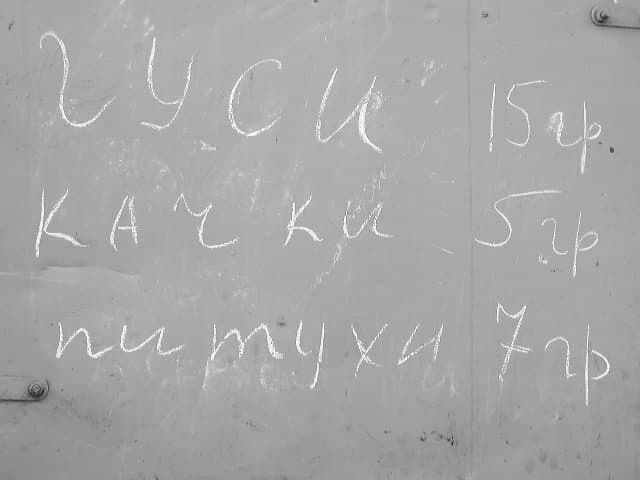 гуси 15 гр
качки 5 гр
питухи 7 гр